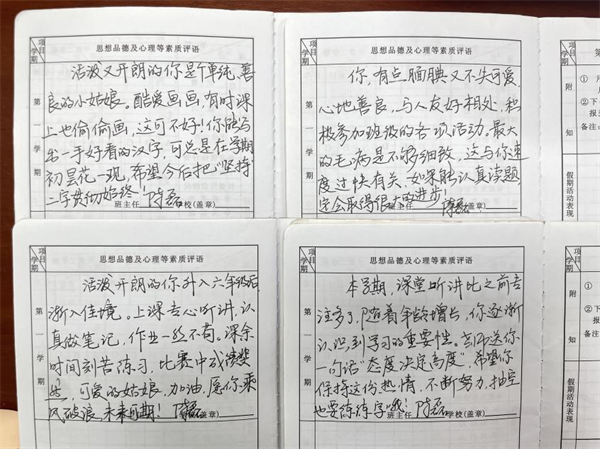 项目
学期
思想品德及心理等素质评语
第一学期
活泼又开朗的你是个单纯、善
良的小姑娘。酷爱画画,有时课
上也偷偷画,这可不好!你能写
出一手好看的汉字,可总是在学期
初昙花一现,希望今后把“坚持”
二字贯彻始终!陈磊
班主任
学校(盖章)
项目
学期
思想品德及心理等素质评语
第一学期
你,有点腼腆又不失可爱,
心地善良,与人友好相处,积
极参加班级的各项活动。最大
的毛病是不够细致,这与你速
度过快有关,如果能认真读题,
定会取得很大的进步!陈磊
班主任
学校(盖章)
附
知
①
②下
报
备注
假期活动表现
项目
学期
思想品德及心理等素质评语
第一学期
活泼开朗的你升入六年级后,
渐入佳境。上课专心听讲,认
真做笔记,作业一丝不苟。课余
时间刻苦练习,比赛中成绩斐
然。可爱的姑娘,加油,愿你乘
风破浪,未来可期!陈磊
(盖章)
项目
学期
思想品德及心理等素质评语
第一学期
本学期,课堂听讲比之前专
注多了,随着年龄增长,你逐渐
认识到学习的重要性。老师送你
一句话“态度决定高度”,希望你
保持这份热情,不断努力,抽空
也要练练字哦!陈磊
班主任
学校(盖章)
附
知
①
②下
报
备注
假期活动表现